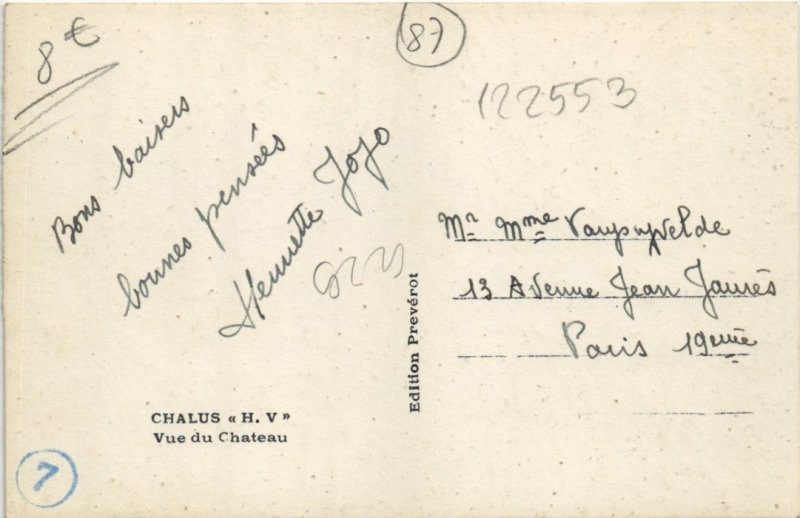 8 €
87
122553
Bons baisers
bonnes pensées
Henriette Jojo
Mr Mme
13 Avenue Jean Jaurès
Paris 19ème
Edition Prevérot
CHALUS « H. V »
Vue du Chateau
7